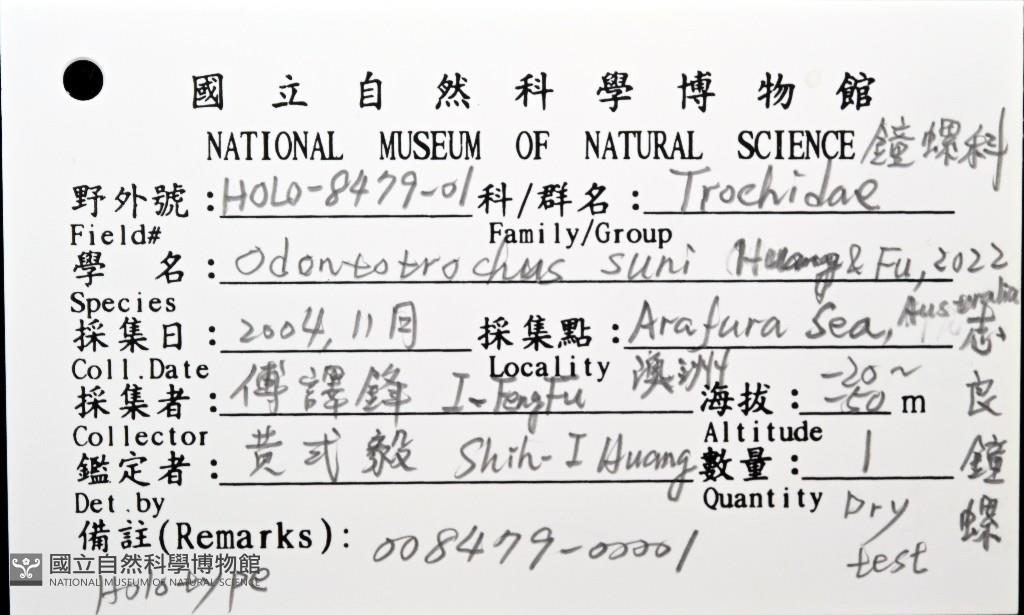 國立自然科學博物館
NATIONAL MUSEUM OF NATURAL SCIENCE 鐘螺科
野外號：HOLO-8479-01 科/群名：Trochidae
Field# Family/Group
學 名：Odontotrochus suni Huang & Fu, 2022
Species
採集日：2004, 11月 採集點：Arafura Sea, Australia
Coll.Date Locality 澳洲
採集者：傅譯鋒 I-Feng Fu 海拔：-20~-50 m
Collector Altitude
鑑定者：黃式毅 Shih-I Huang 數量：1
Det.by Quantity Dry test
備註(Remarks)：008479-00001
Holotype
志良鐘螺
國立自然科學博物館
NATIONAL MUSEUM OF NATURAL SCIENCE